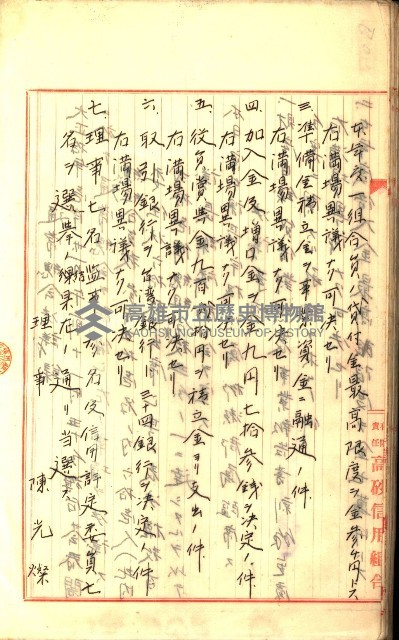 本年度一組合員ノ貸付金最高限度ヲ金参千円トス
右満場異議ナク可決セリ
三、準備金積立金ヲ事業資金ニ融通ノ件
右満場異議ナク可決セリ
四、加入金及増口金ヲ金九円七拾参銭ヲ決定ノ件
右満場異議ナク可決セリ
五、役員賞与金九百八拾円ヲ積立金ヨリ支出ノ件
右満場異議ナク可決セリ
六、取引銀行ヲ台湾銀行三十四銀行ヲ決定ノ件
右満場異議ナク可決セリ
七、理事七名監事参名及信用評定委員七
名ヲ選挙ノ結果左ノ通リ当選ス
理事 陳光燦
高砂信用組合
高雄市立歷史博物館
KAOHSIUNG MUSEUM OF HISTORY